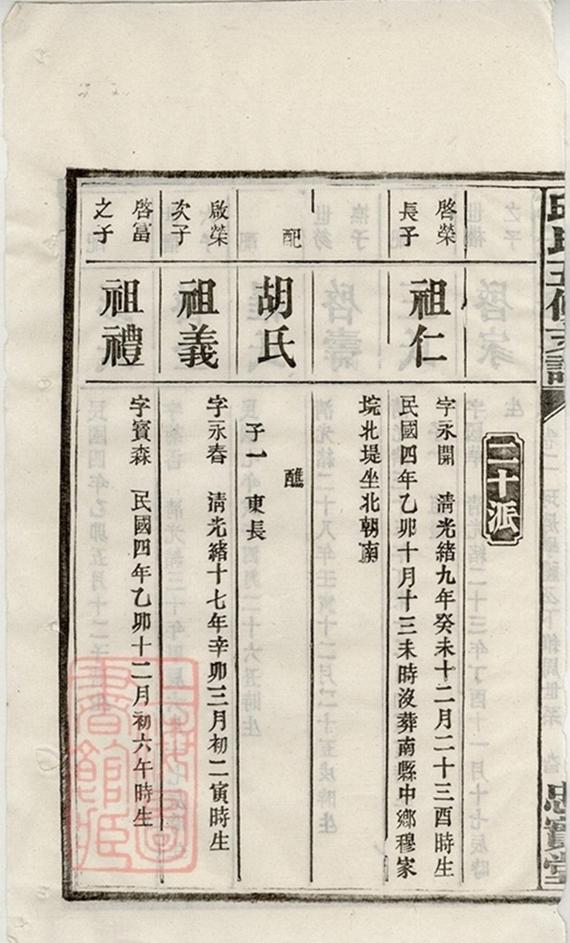 邱氏五修支譜
忠實堂
二十派
啓榮
長子
祖仁
字永開　清光緒九年癸未十二月二十三酉時生
民國四年乙卯十月十三未時沒葬南縣中鄉穆家
垸北堤坐北朝南
配
胡氏
醮
子一　東長
啟榮
次子
祖義
字永春　清光緒十七年辛卯三月初二寅時生
啓富
之子
祖禮
字寳森　民國四年乙卯十二月初六午時生